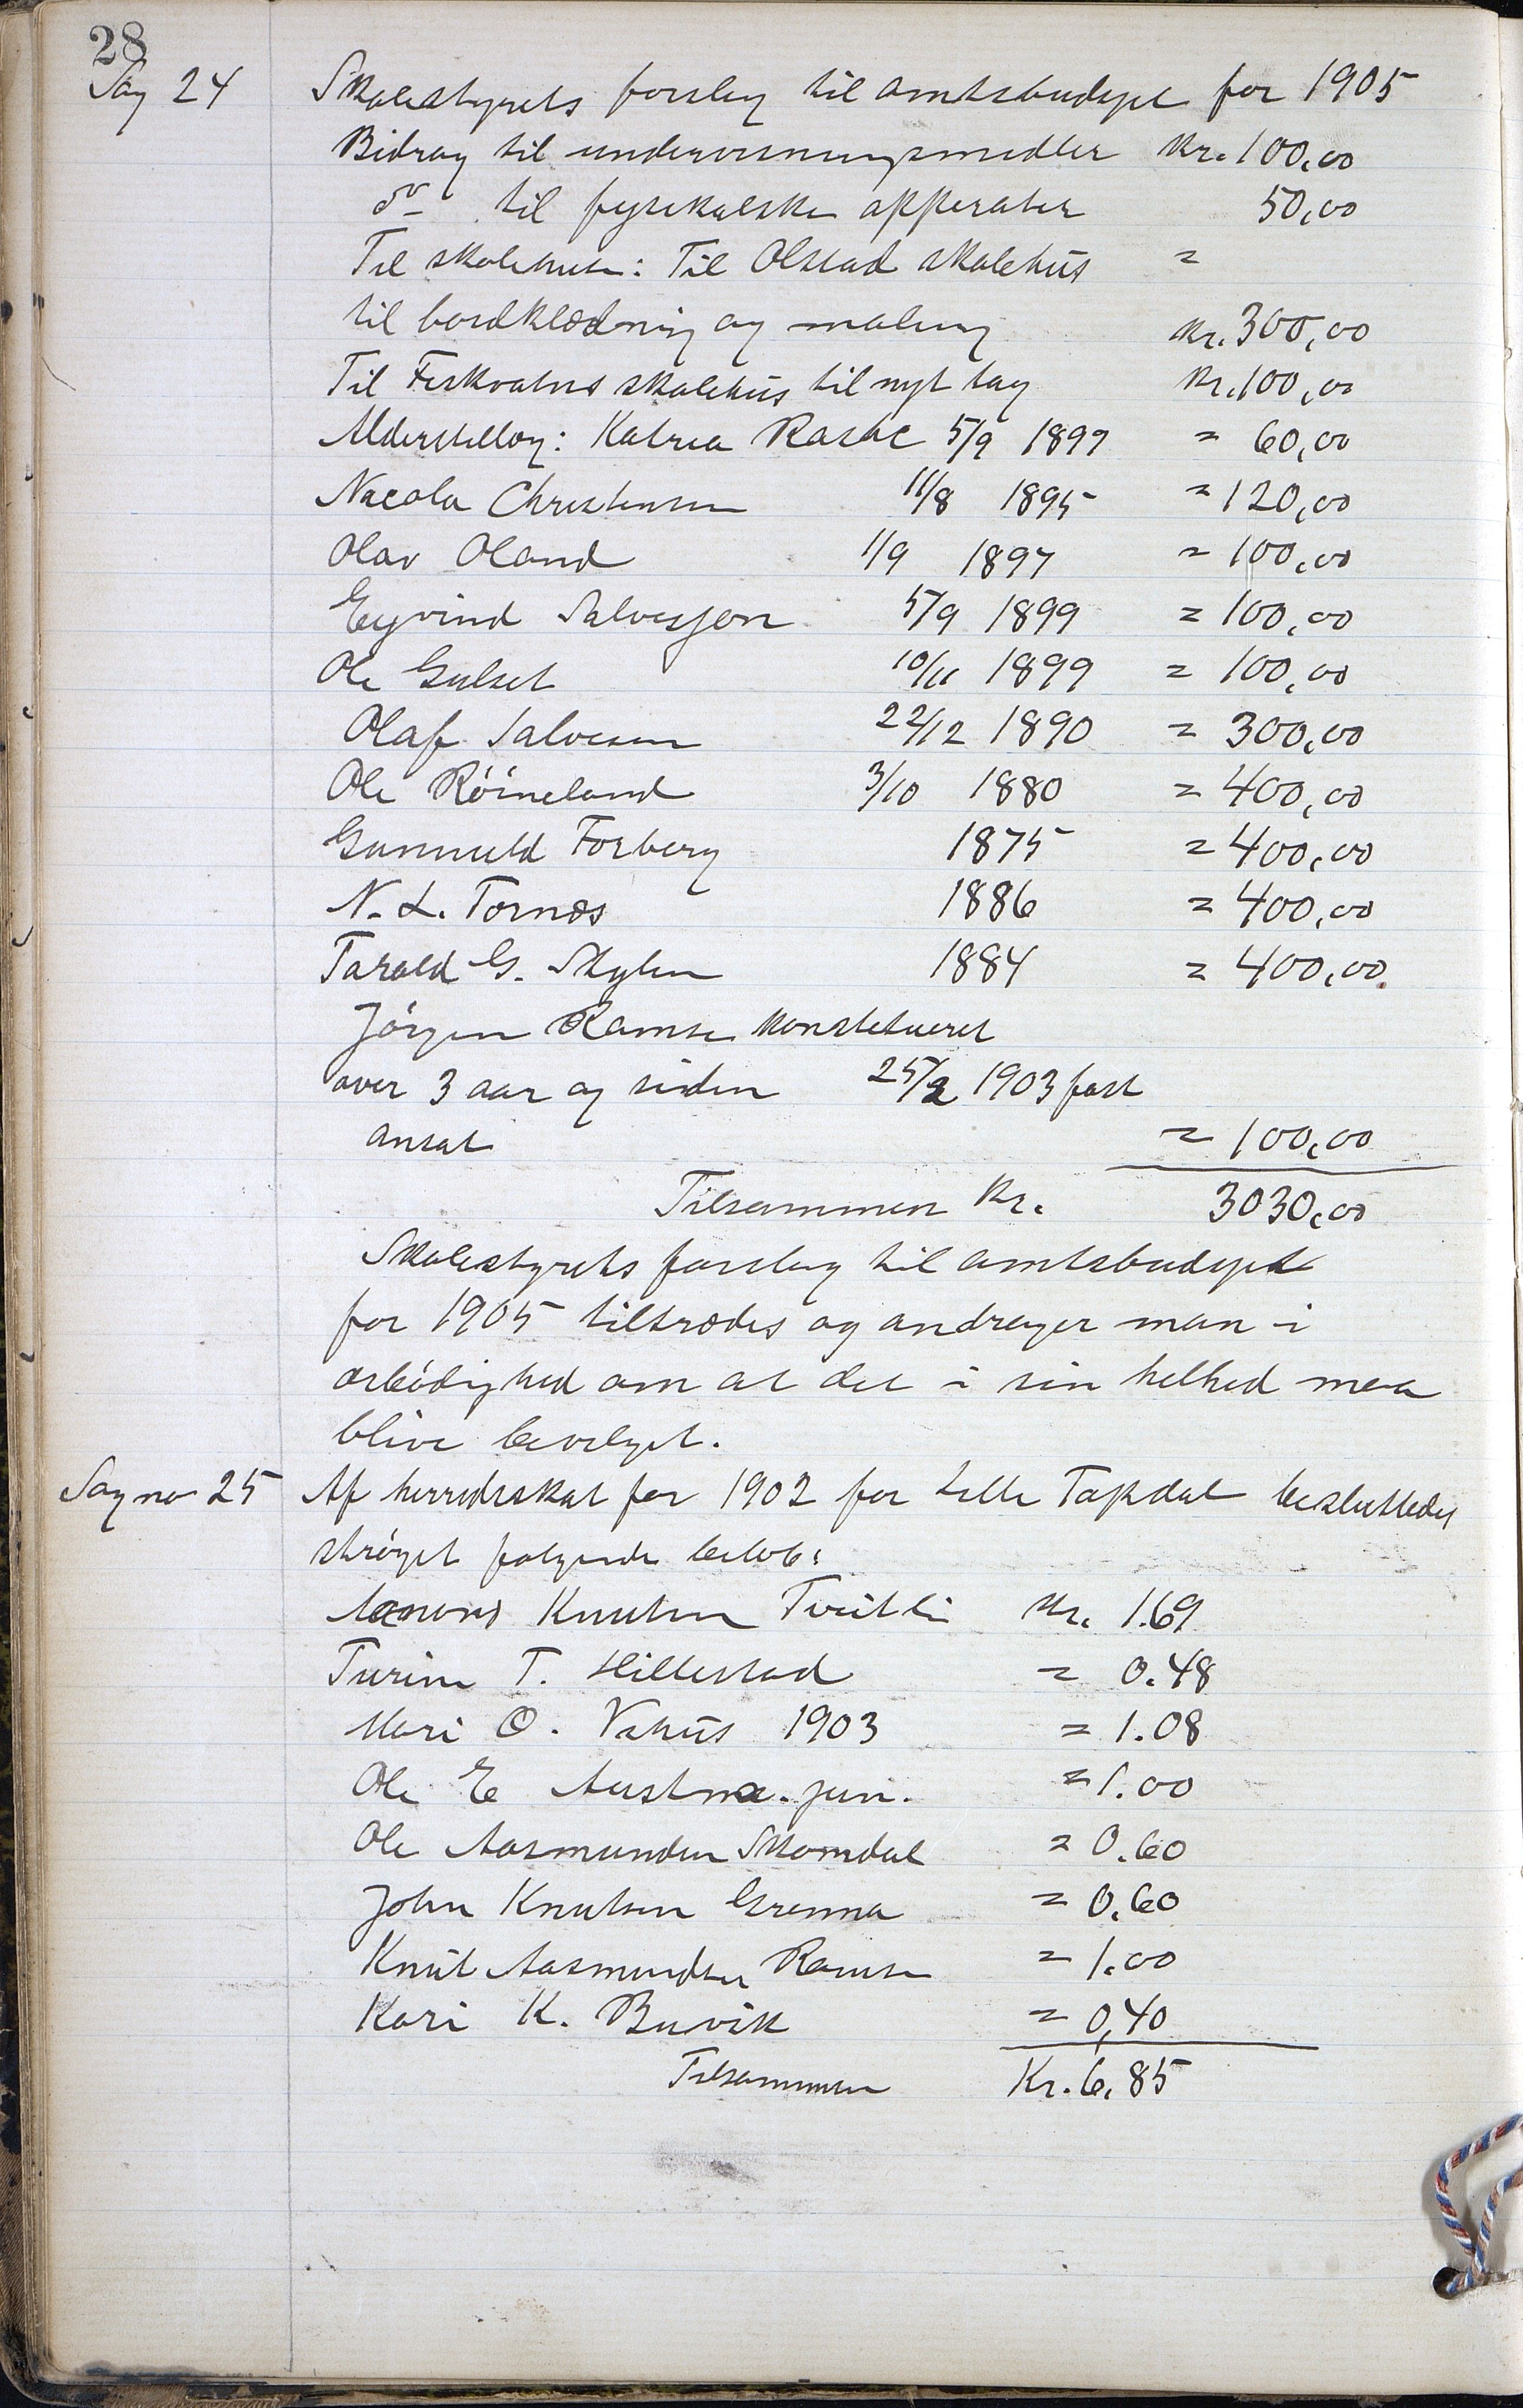 28
Sag 24 Skolestyrets forslag til amtsbudget for 1905
Bidrag til undervisningsmedler Kr. 100,00
do - til fysikalske apperater 50,00
Til skolehuse: Til Olstad skolehus =
til bordklædning og maling Kr. 300,00
Til Fiskvatns skolehus til nyt tag Kr. 100,00
Alderstillæg: Katrea 5/9 1899 = 60,00
Nicolai Christensen 11/8 1895 = 120,00
Olav Oland 1/9 1897 = 100,00
Eyvind Salvesjen 5/9 1899 = 100,00
Ole Gulset 10/11 1899 = 100,00
Olaf Salvesen 22/12 1890 = 300,00
Ole Røineland 3/10 1880 = 400,00
Gunnuld Forberg 1875 = 400,00
N. L. Tornæs 1886 = 400,00
Tarald G. 1884 = 400,00
Jörgen Ramse konstitueret
over 3 aar og siden 25/2 1903 fast
ansat = 100,00
Tilsammen Kr. 3030,00
Skolestyrets forslag til amtsbudget
for 1905 tiltrædes og andrager man i
ærbödighed om at det i sin helhed maa
blive bevilget.
Sag no 25 Af herredsskat for 1902 for Lille Topdal besluttedes
ströget følgende beløb:
Knutsen Tveitli Kr. 1.69
Turine T. Hillestad = 0.48
Mari O. Vahus 1903 = 1.08
Ole E jun. = 1.00
Ole Aasmundsen Skomdal = 0.60
John Knutsen Grenna = 0.60
Knut Aasmundsen Ramse = 1.00
Kari K. Buvik = 0,40
Tilsammen Kr. 6,85